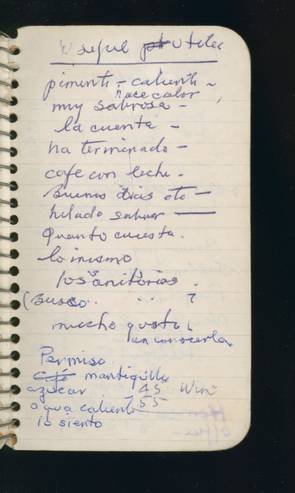 Useful utiles
pimienti - calienti -
hace calor
muy sabrosa -
la cuenta -
ha terminado -
cafe con leche -
Buenos dias etc -
helado sabor -
Quanto cuesta.
lo mismo
los sanitorios.
(Busco. .. . ?
mucho gusto
en conocerla
Permiso
mantiquilla
azucar 45
agua calient 55
lo siento